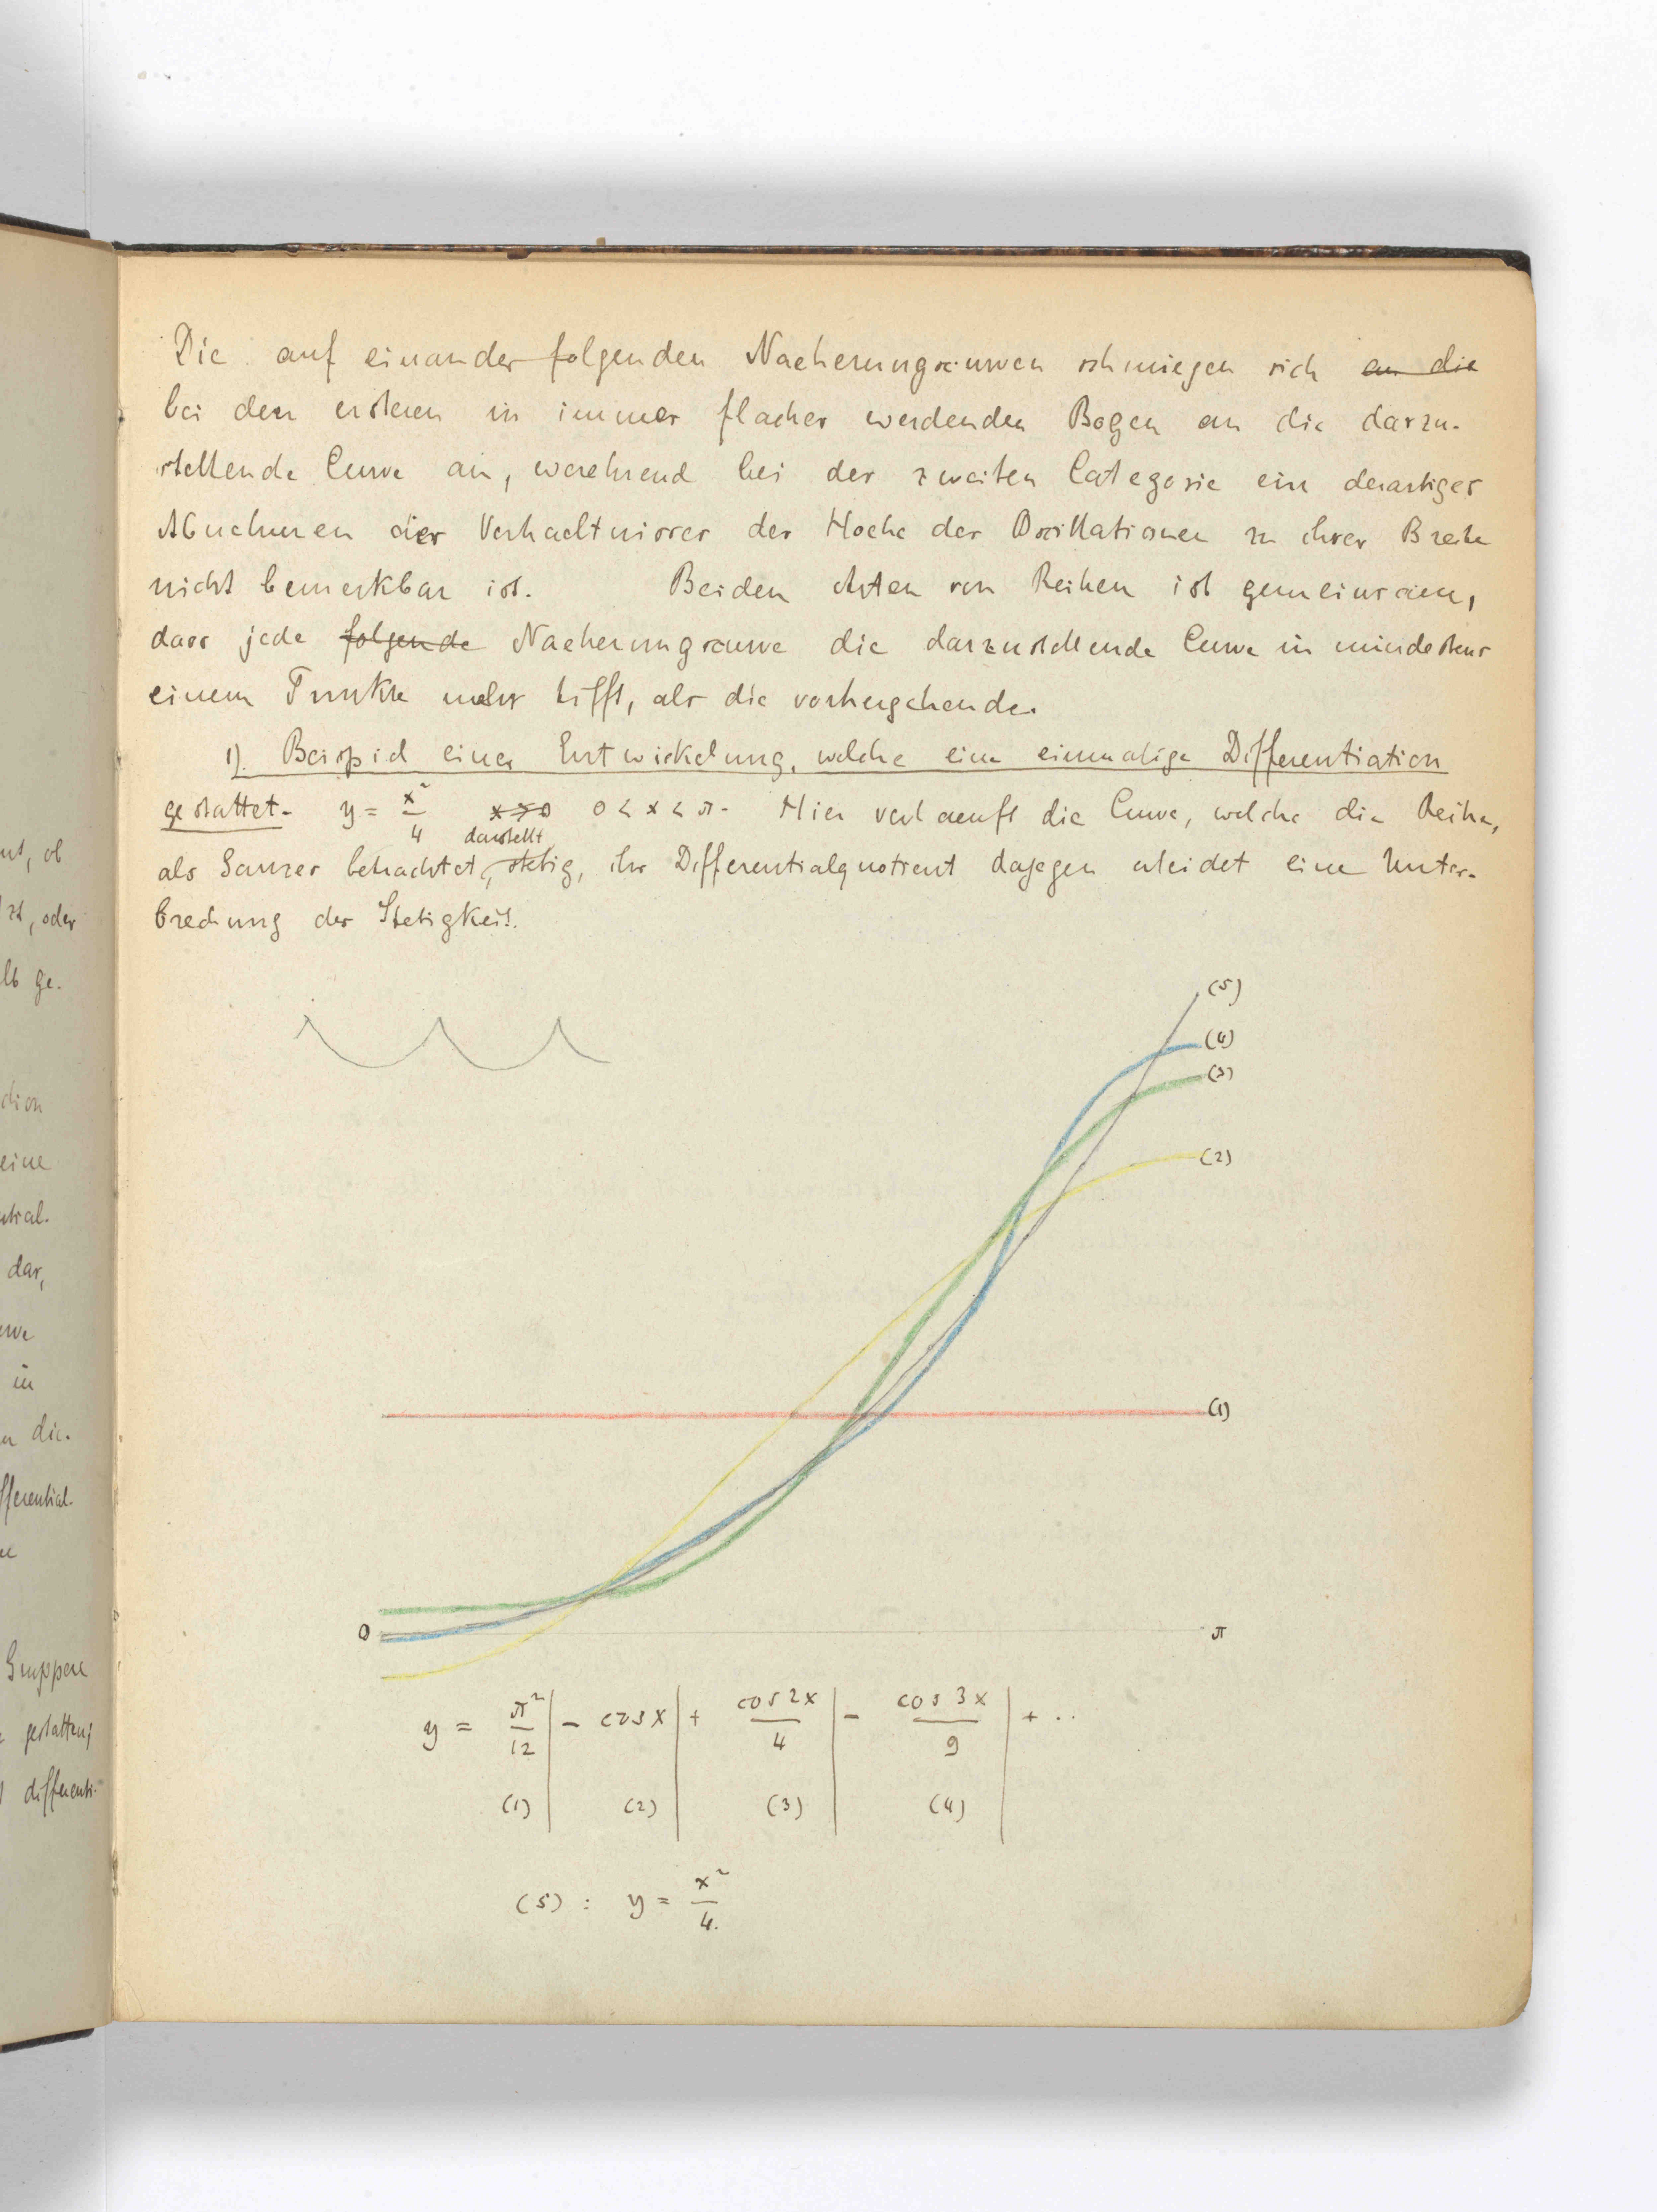 Die auf einander folgenden Naeherungscurven schmiegen sich an die
bei den ersteren in immer flacher werdenden Bogen an die darzu-
stellende Curve an, waehrend bei der zweiten Categorie ein derartiges
Abnehmen des Verhaeltnisses der Hoehe der Oscillationen zu ihrer Breite
nicht bemerkbar ist. Beiden Arten von Reihen ist gemeinsam,
dass jede folgende Naeherungscurve die darzustellende Curve in mindestens
einem Punkte mehr trifft, als die vorhergehende.
1). Beispiel einer Entwickelung, welche eine einmalige Differentiation
gestattet. y = x²/4 0 < x < π. Hier verlaeuft die Curve, welche die Reihe,
darstellt
als Ganzes betrachtet, stetig, ihr Differentialquotient dagegen erleidet eine Unter-
brechung der Stetigkeit.
(5)
(4)
(3)
(2)
(1)
0 π
y = π²/12 | - cos x | + cos 2x/4 | - cos 3x/9 | + ..
(1) | (2) | (3) | (4) |
(5) : y = x²/4.
nt, ob
zt, oder
lb ge.
ction
eine
ntral.
dar,
urve
in
n die.
fferential.
Gruppen
gestatten,
differenti-